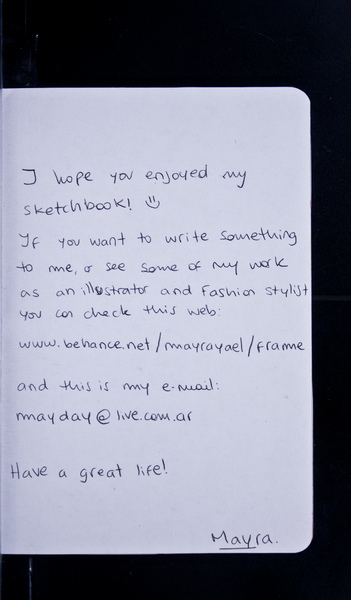 I hope you enjoyed my
sketchbook! :)
If you want to write something
to me, or see some of my work
as an illustrator and Fashion stylist
you can check this web:
www.behance.net/mayrayael/frame
and this is my e-mail:
mayday@live.com.ar
Have a great life!
Mayra.